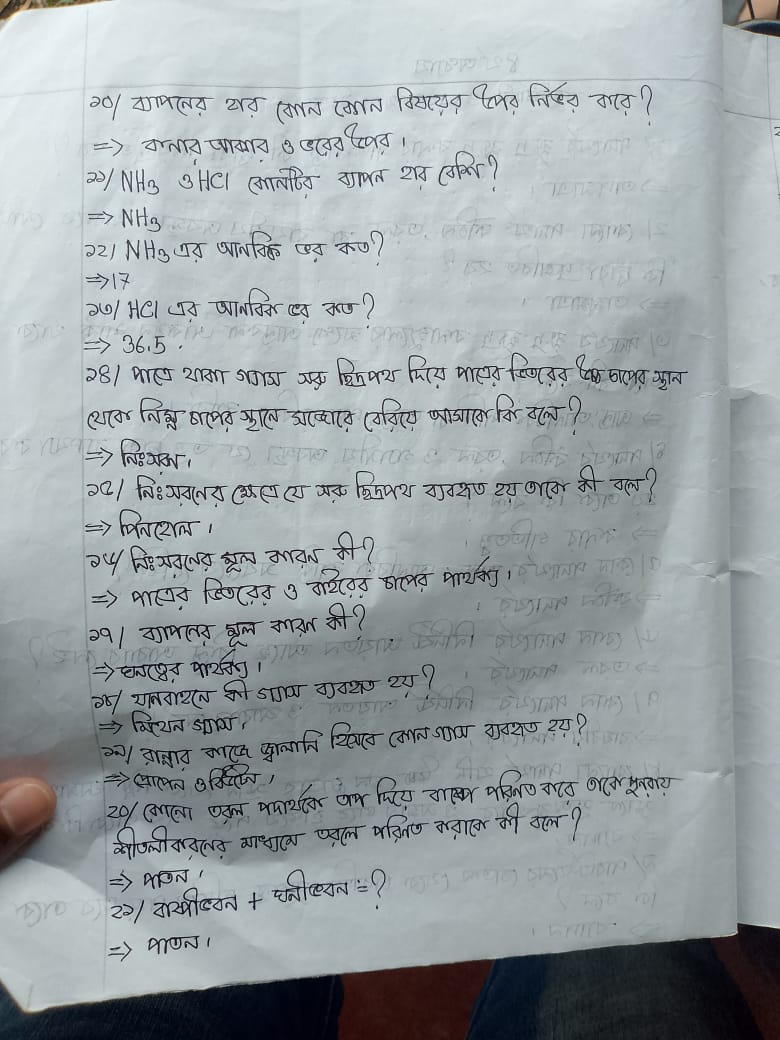 ১০/ ব্যাপনের হার কোন কোন বিষয়ের উপর নির্ভর করে?
=> কনার আকার ও ভরের উপর।
১১/ NH3 ও HCl কোনটির ব্যাপন হার বেশি?
=> NH3
১২/ NH3 এর আনবিক ভর কত?
=> 17
১৩/ HCl এর আনবিক ভর কত?
=> 36.5.
১৪/ পাত্রে থাকা গ্যাস সরু ছিদ্রপথ দিয়ে পাত্রের ভিতরের উচ্চ চাপের স্থান
থেকে নিম্ন চাপের স্থানে সজোরে বেরিয়ে আসাকে কি বলে?
=> নিঃসরন।
১৫/ নিঃসরনের ক্ষেত্রে যে সরু ছিদ্রপথ ব্যবহৃত হয় তাকে কী বলে?
=> পিনহোল।
১৬/ নিঃসরনের মূল কারন কী?
=> পাত্রের ভিতরের ও বাইরের চাপের পার্থক্য।
১৭/ ব্যাপনের মূল কারন কী?
=> ঘনত্বের পার্থক্য।
১৮/ যানবাহনে কী গ্যাস ব্যবহৃত হয়?
=> মিথেন গ্যাস।
১৯/ রান্নার কাজে জ্বালানি হিসেবে কোন গ্যাস ব্যবহৃত হয়?
=> প্রোপেন ও বিউটেন।
২০/ কোনো তরল পদার্থকে তাপ দিয়ে বাষ্পে পরিনত করে তাকে পুনরায়
শীতলীকারনের মাধ্যমে তরলে পরিনত করাকে কী বলে?
=> পাতন।
২১/ বাষ্পীভবন + ঘনীভবন = ?
=> পাতন।